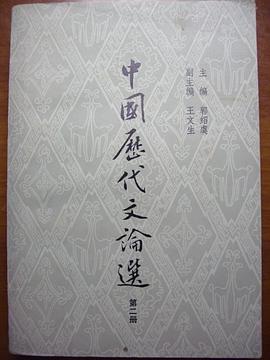 主编 郭绍虞
副主编 王文生
中國歷代文論選
第二册